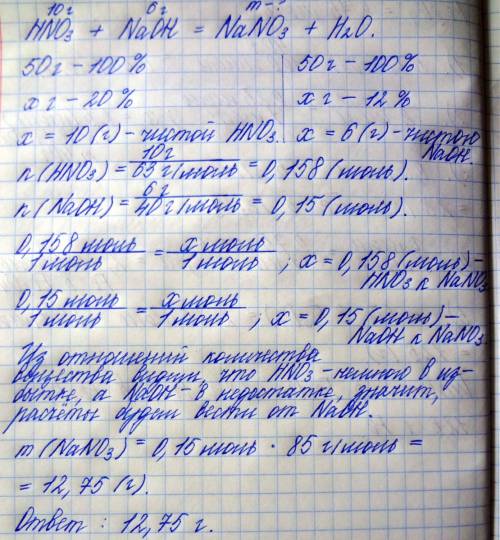 10г 6г m-?
HNO3 + NaOH = NaNO3 + H2O.
50г – 100% 50г – 100%
x г – 20% x г – 12%
x = 10 (г) – чистой HNO3. x = 6 (г) – чистого NaOH
n (HNO3) = 10г / 63 г/моль = 0,158 (моль).
n (NaOH) = 6г / 40 г/моль = 0,15 (моль).
0,158 моль / 1 моль = x моль / 1 моль ; x = 0,158 (моль) –
HNO3 к NaNO3
0,15 моль / 1 моль = x моль / 1 моль ; x = 0,15 (моль) –
NaOH к NaNO3.
Из отношений количества
вещества видим, что HNO3 – немного в из-
бытке, а NaOH – в недостатке, значит,
расчёты будем вести от NaOH.
m (NaNO3) = 0,15 моль · 85 г/моль =
= 12,75 (г).
Ответ : 12,75 г.